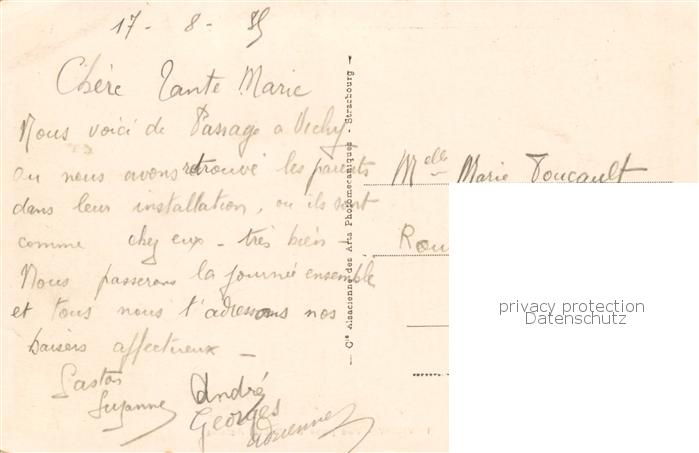 17 - 8 - 35
Chère Tante Marie
Nous voici de Passage a Vichy
ou nous avons retrouvé les parents
dans leur installation, ou ils sont
comme chez eux - très bien -
Nous passerons la journée ensemble
et tous nous t'adressons nos
baisers affectueux -
Gaston
Suzanne
André
Georges
Adrienne
Cie Alsacienne des Arts Photomécaniques - Strasbourg
Melle Marie Foucault
Rou
privacy protection
Datenschutz